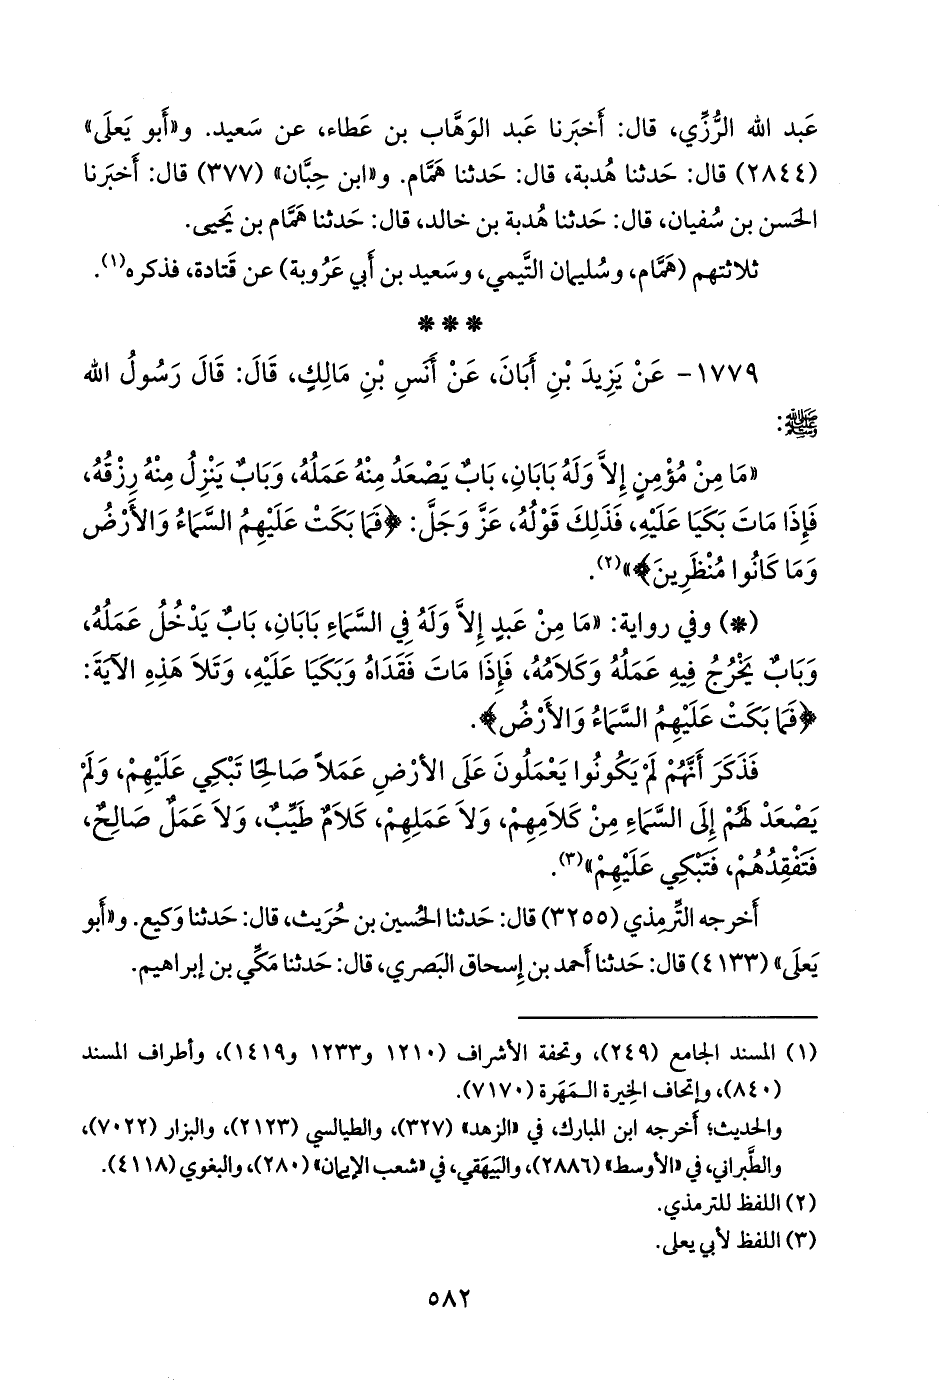 عَبد الله الرُّزِّي، قال: أَخبَرنا عَبد الوَهَّاب بن عَطاء، عن سَعيد. و«أَبو يَعلَى»
(٢٨٤٤) قال: حَدثنا هُدبة، قال: حَدثنا هَمَّام. و«ابن حِبَّان» (٣٧٧) قال: أَخبَرنا
الحَسن بن سُفيان، قال: حَدثنا هُدبة بن خالد، قال: حَدثنا هَمَّام بن يَحيى.
ثلاثتهم (هَمَّام، وسُليمان التَّيمي، وسَعيد بن أَبي عَرُوبة) عن قَتادة، فذكره(١).
* * *
١٧٧٩- عَنْ يَزِيدَ بْنِ أَبَانَ، عَنْ أَنَسِ بْنِ مَالِكٍ، قَالَ: قَالَ رَسُولُ الله
ﷺ:
«مَا مِنْ مُؤْمِنٍ إِلاَّ وَلَهُ بَابَانِ، بَابٌ يَصْعَدُ مِنْهُ عَمَلُهُ، وَبَابٌ يَنْزِلُ مِنْهُ رِزْقُهُ،
فَإِذَا مَاتَ بَكَيَا عَلَيْهِ، فَذَلِكَ قَوْلُهُ، عَزَّ وَجَلَّ: ﴿فَمَا بَكَتْ عَلَيْهِمُ السَّمَاءُ وَالأَرْضُ
وَمَا كَانُوا مُنْظَرِينَ﴾»(٢).
(*) وفي رواية: «مَا مِنْ عَبدٍ إِلاَّ وَلَهُ فِي السَّمَاءِ بَابَانِ، بَابٌ يَدْخُلُ عَمَلُهُ،
وَبَابٌ يَخْرُجُ فِيهِ عَمَلُهُ وَكَلاَمُهُ، فَإِذَا مَاتَ فَقَدَاهُ وَبَكَيَا عَلَيْهِ، وَتَلاَ هَذِهِ الآيَةَ:
﴿فَمَا بَكَتْ عَلَيْهِمُ السَّمَاءُ وَالأَرْضُ﴾.
فَذَكَرَ أَنَّهُمْ لَمْ يَكُونُوا يَعْمَلُونَ عَلَى الأَرْضِ عَمَلاً صَالِحًا تَبْكِي عَلَيْهِمْ، وَلَمْ
يَصْعَدْ لَهُمْ إِلَى السَّمَاءِ مِنْ كَلاَمِهِمْ، وَلاَ عَمَلِهِمْ، كَلاَمٌ طَيِّبٌ، وَلاَ عَمَلٌ صَالِحٌ،
فَتَفْقِدُهُمْ، فَتَبْكِي عَلَيْهِمْ»(٣).
أَخرجه التِّرمِذي (٣٢٥٥) قال: حَدثنا الحُسين بن حُرَيث، قال: حَدثنا وَكيع. و«أَبو
يَعلَى» (٤١٣٣) قال: حَدثنا أَحمد بن إِسحاق البَصري، قال: حَدثنا مَكِّي بن إِبراهيم.
(١) المسند الجامع (٢٤٩)، وتحفة الأشراف (١٢١٠ و١٢٣٣ و١٤١٩)، وأطراف المسند
(٨٤٠)، وإتحاف الخِيرة المَهَرة (٧١٧٠).
والحديث؛ أَخرجه ابن المبارك، في «الزهد» (٣٢٧)، والطيالسي (٢١٢٣)، والبزار (٧٠٢٢)،
والطَّبراني، في «الأوسط» (٢٨٨٦)، والبَيهَقي، في «شعب الإيمان» (٢٨٠)، والبغوي (٤١١٨).
(٢) اللفظ للترمذي.
(٣) اللفظ لأبي يعلى.
٥٨٢